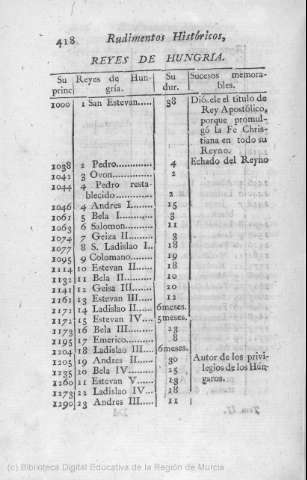 418 Rudimentos Históricos,
REYES DE HUNGRIA.
Su princ | Reyes de Hungría. | Su dur. | Sucesos memorables.
1000 1 San Estevan..... 38 Dióse le el titulo de
Rey Apostólico,
porque promul-
gó la Fe Chris-
tiana en todo su
Reyno.
1038 2 Pedro............. 4 Echado del Reyno
1041 3 Ovon............. 2
1044 4 Pedro resta-
blecido........... 2
1046 4 Andres I........ 15
1061 5 Bela I............ 3
1063 6 Salomon......... 11
1074 7 Geiza II......... 3
1077 8 S. Ladislao I... 18
1095 9 Colomano....... 19
1114 10 Estevan II...... 18
1132 11 Bela II.......... 10
1141 12 Geisa III........ 20
1161 13 Estevan III..... 12
1171 14 Ladislao II..... 6meses.
1171 15 Estevan IV..... 5meses.
1173 16 Bela III......... 23
1195 17 Emerico......... 8
1204 18 Ladislao III.... 6meses.
1205 19 Andres II....... 30 Autor de los privi-
1235 20 Bela IV.......... 25 legios de los Hún-
1260 21 Estevan V...... 13 garos.
1273 22 Ladislao IV..... 18
1290 23 Andres III...... 11
(c) Biblioteca Digital Educativa de la Región de Murcia